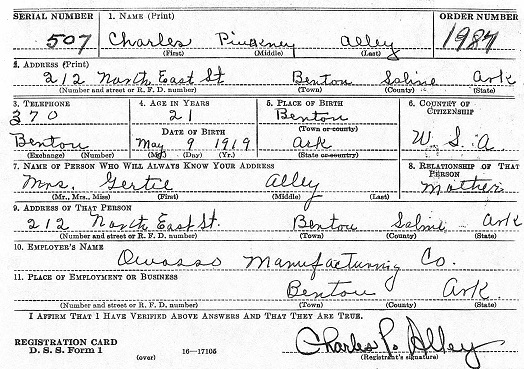 SERIAL NUMBER 1. NAME (Print) ORDER NUMBER
507 Charles Pinkney Alley 1987
(First) (Middle) (Last)
2. ADDRESS (Print)
212 North East St. Benton Saline Ark
(Number and street or R. F. D. number) (Town) (County) (State)
3. TELEPHONE 4. AGE IN YEARS 5. PLACE OF BIRTH 6. COUNTRY OF CITIZENSHIP
370 21 Benton
(Town or county)
DATE OF BIRTH
Benton May 9 1919 Ark U. S. A
(Exchange) (Number) (Mo.) (Day) (Yr.) (State or country)
7. NAME OF PERSON WHO WILL ALWAYS KNOW YOUR ADDRESS 8. RELATIONSHIP OF THAT PERSON
Mrs. Gertie Alley Mother
(Mr., Mrs., Miss) (First) (Middle) (Last)
9. ADDRESS OF THAT PERSON
212 North East St. Benton Saline Ark
(Number and street or R. F. D. number) (Town) (County) (State)
10. EMPLOYER'S NAME
Owosso Manufacturing Co.
11. PLACE OF EMPLOYMENT OR BUSINESS
Benton Ark.
(Number and street or R. F. D. number) (Town) (County) (State)
I AFFIRM THAT I HAVE VERIFIED ABOVE ANSWERS AND THAT THEY ARE TRUE.
REGISTRATION CARD
D. S. S. Form 1 (over) 16—17105 Charles P. Alley
(Registrant's signature)